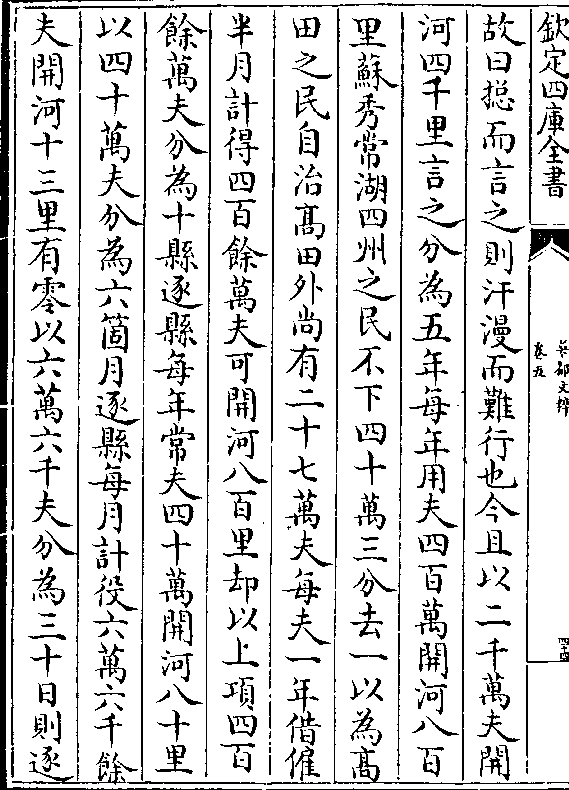 欽定四庫全書
吳都文粹
卷五
故曰揔而言之則汗漫而難行也今且以二千萬夫開
河四千里言之分為五年每年用夫四百萬開河八百
里蘇秀常湖四州之民不下四十萬三分去一以為髙
田之民自治髙田外尚有二十七萬夫每夫一年借僱
半月計得四百餘萬夫可開河八百里却以上項四百
餘萬夫分為十縣逐縣每年常夫四十萬開河八十里
以四十萬夫分為六箇月逐縣每月計役六萬六千餘
夫開河十三里有零以六萬六千夫分為三十日則逐